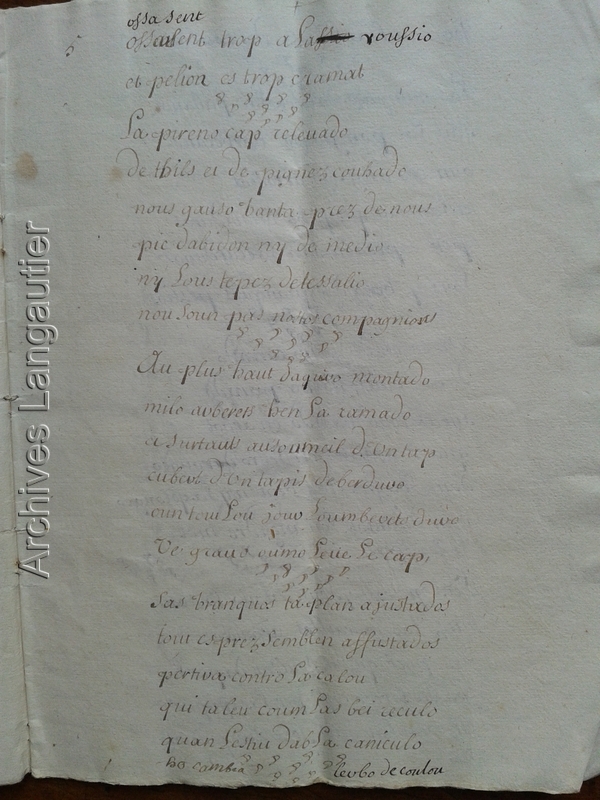 ossa sent
ossa sent trap a La roussio
et pelion es trop cramat
La pireno cap releuado
de thils et de pignez couhado
nous gauso banta prez de nous
pic dabidon ny de medio
ny Lous tepez detessalio
nou soun pas nostos compagnious
Au plus haut daquero montado
milo auberets hen La ramado
a surtaut au soumeil d'un tap
cubert d'un tapis deberduro
oun tout Lou jour Loumbreto duro
Le cap,
Sas branquos ta plan ajustados
tout esprez semblen affustados
per tira contro La calou
qui taleu coum Las bei reculo
quan Lestiu dab La caniculo
ho cambia Lerbo de coulou
Archives Langautier